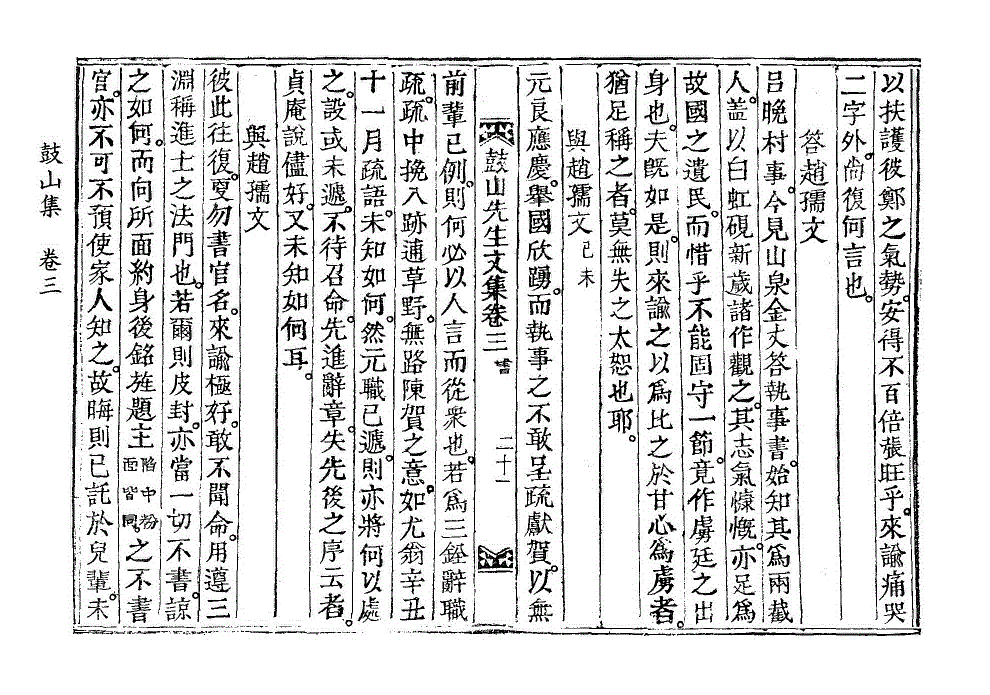 以扶護彼鄭之氣勢。安得不百倍張旺乎。來諭痛哭
二字外。尙復何言也。
答趙孺文
呂晩村事。今見山泉金丈答執事書。始知其爲兩截
人。盖以白虹硯新歲諸作觀之。其志氣慷慨。亦足爲
故國之遺民。而惜乎不能固守一節。竟作虜廷之出
身也。夫旣如是。則來諭之以爲比之於甘心爲虜者。
猶足稱之者。莫無失之太恕也耶。
與趙孺文 己未
元良應慶。擧國欣踴。而執事之不敢呈疏獻賀。以無
鼓山先生文集卷三 書 二十一
前輩已例。則何必以人言而從衆也。若爲三銓辭職
疏。疏中挽入跡逋草野。無路陳賀之意。如尤翁辛丑
十一月疏語。未知如何。然元職已遞。則亦將何以處
之。設或未遞。不待召命。先進辭章。失先後之序云者。
貞庵說儘好。又未知如何耳。
與趙孺文
彼此往復。更勿書官名。來諭極好。敢不聞命。用遵三
淵稱進士之法門也。若爾則皮封。亦當一切不書。諒
之如何。而向所面約身後銘旌題主 陷中粉面皆同 之不書
官。亦不可不預使家人知之。故晦則已託於兒輩。未
鼓山集 卷三